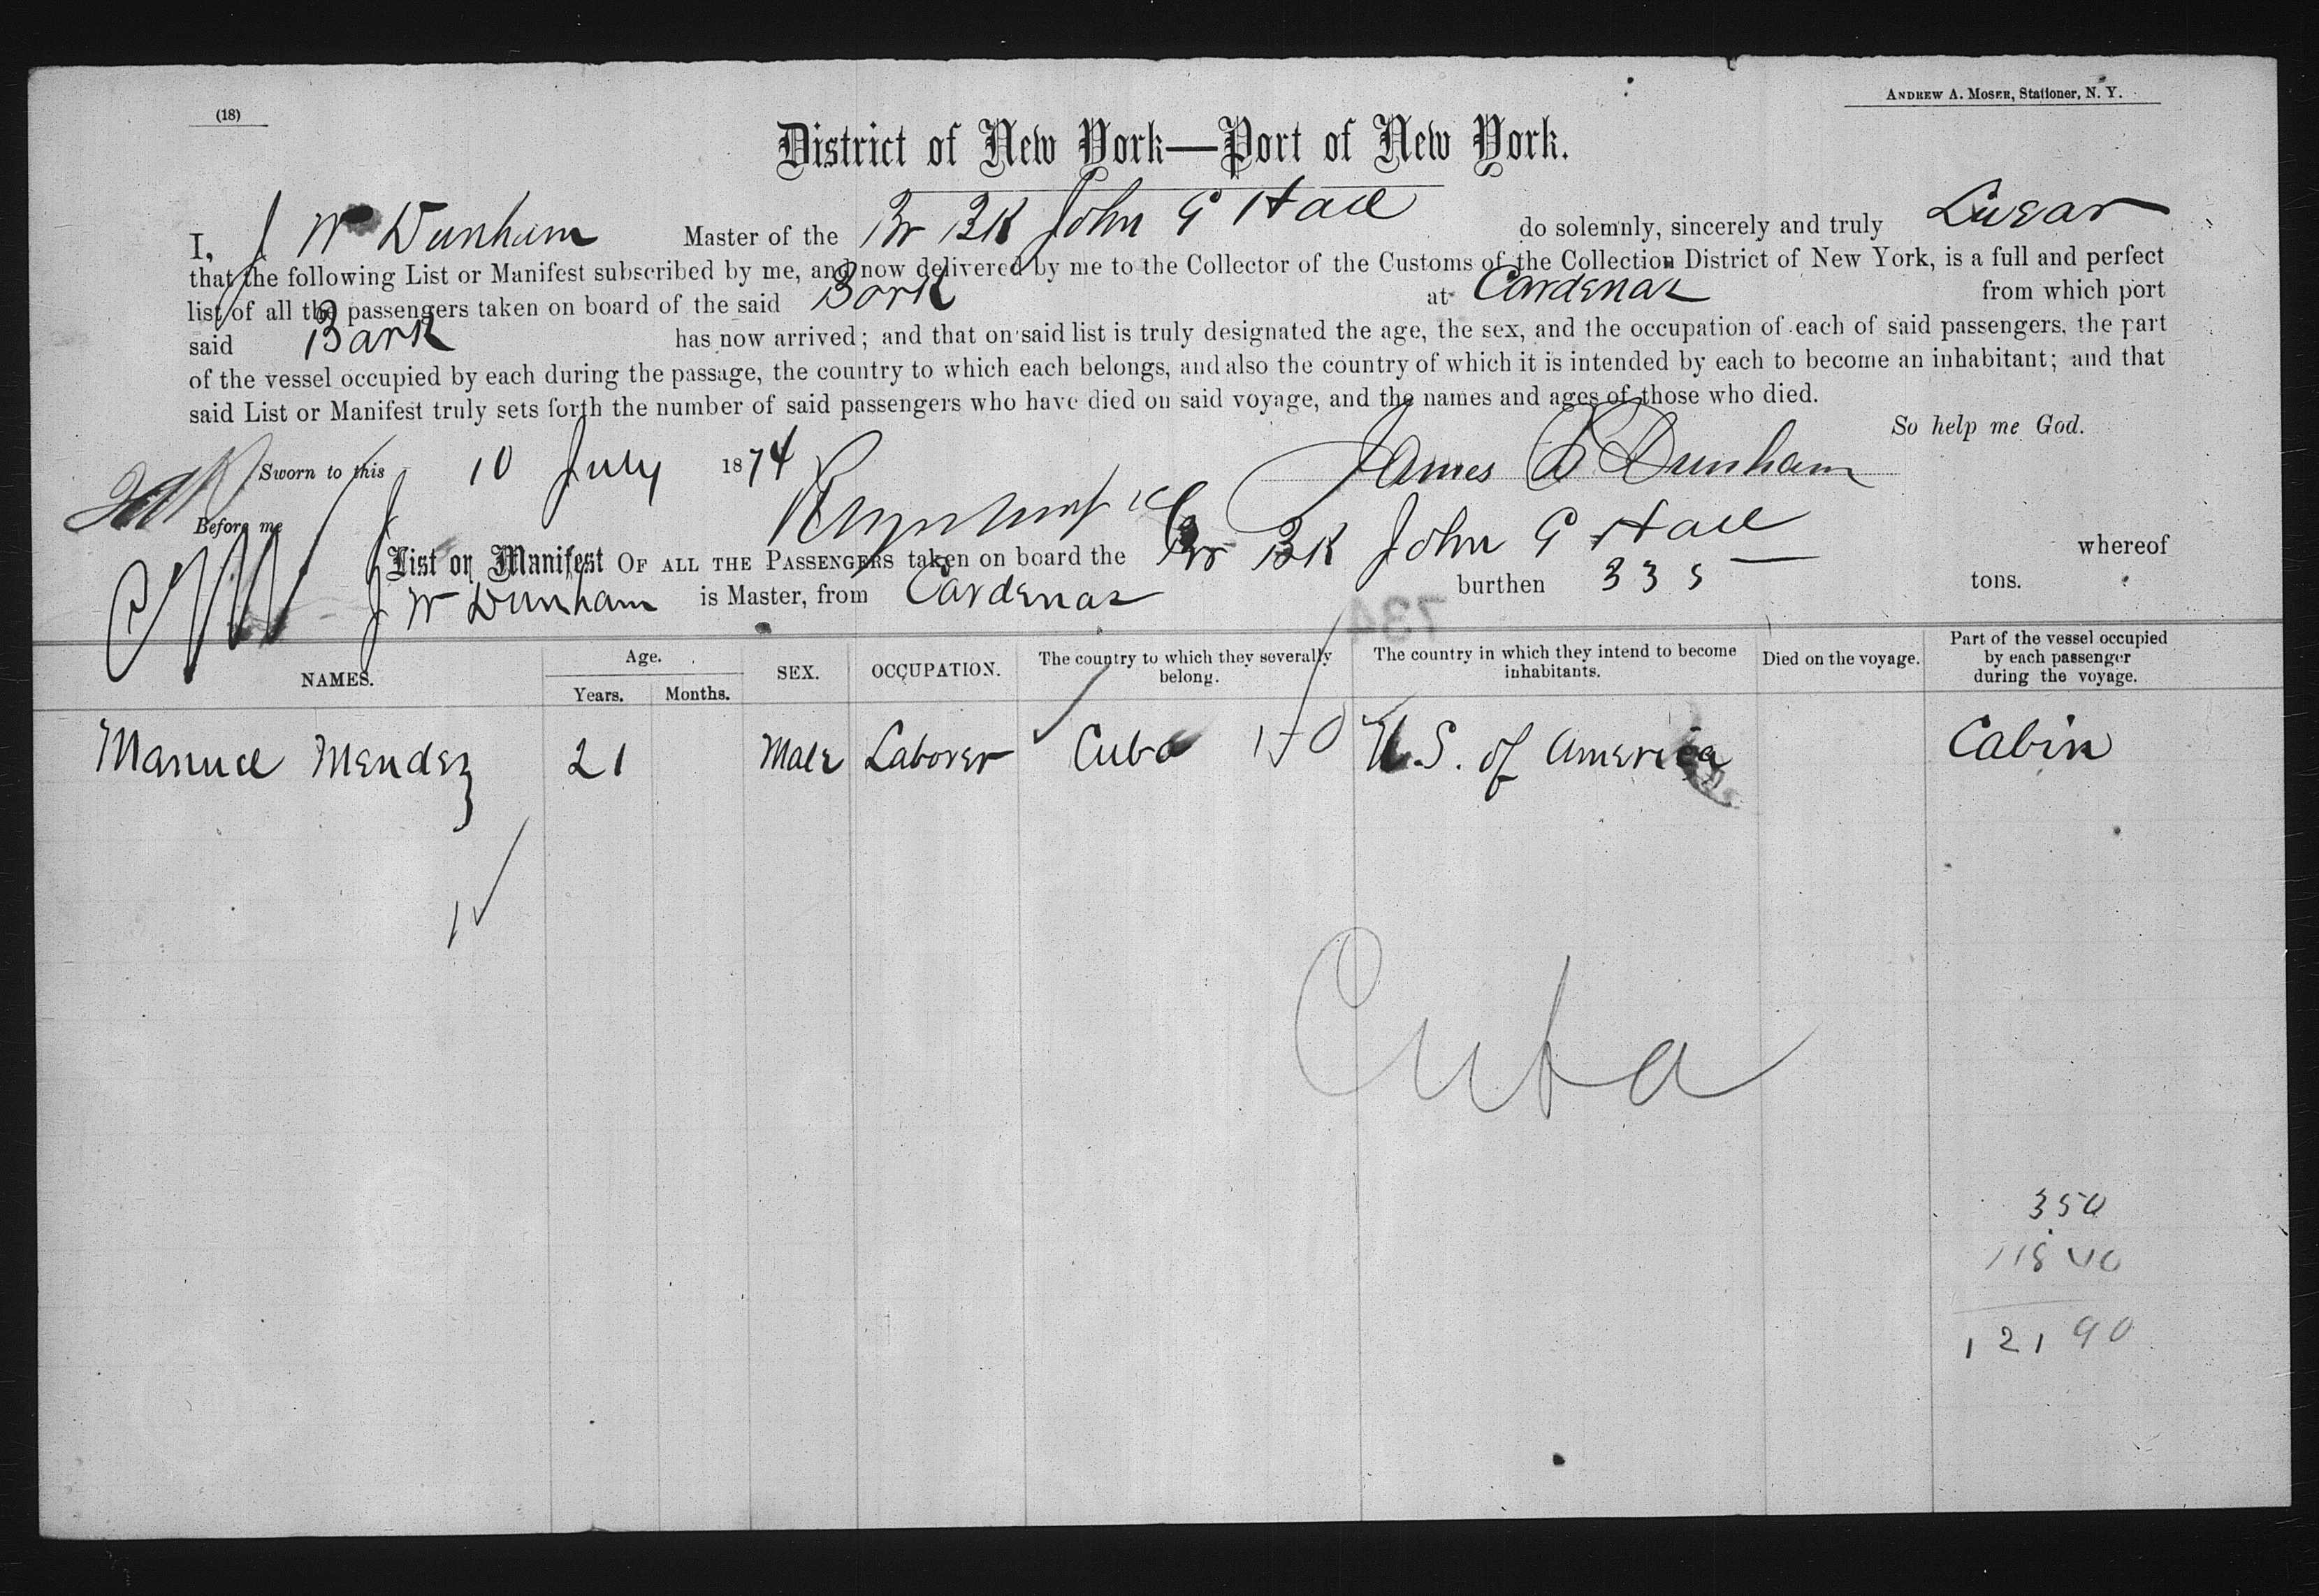 (18)
ANDREW A. MOSER, Stationer, N. Y.
District of New York—Port of New York.
I, J W Dunham Master of the Br BK John G Hall do solemnly, sincerely and truly Swear
that the following List or Manifest subscribed by me, and now delivered by me to the Collector of the Customs of the Collection District of New York, is a full and perfect
list of all the passengers taken on board of the said Bark at Cardenas from which port
said Bark has now arrived; and that on said list is truly designated the age, the sex, and the occupation of each of said passengers, the part
of the vessel occupied by each during the passage, the country to which each belongs, and also the country of which it is intended by each to become an inhabitant; and that
said List or Manifest truly sets forth the number of said passengers who have died on said voyage, and the names and ages of those who died.
So help me God.
Sworn to this 10 July 1874 James Dunham
Before me
List or Manifest OF ALL THE PASSENGERS taken on board the Br BK John G Hall whereof
J W Dunham is Master, from Cardenas burthen 335 tons.
734
NAMES. Age. Years. Months. SEX. OCCUPATION. The country to which they severally belong. The country in which they intend to become inhabitants. Died on the voyage. Part of the vessel occupied by each passenger during the voyage.
Manuel Mendez 21 Male Laborer Cuba U.S. of America Cabin
1
Cuba
350
11840
12190